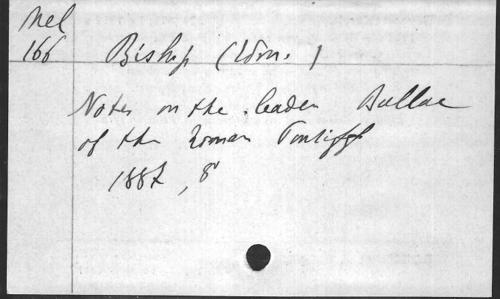 Mel
166 Bishop (Edm.)
Notes on the leaden Bullae
of the Roman Pontiffs
1887, 8°